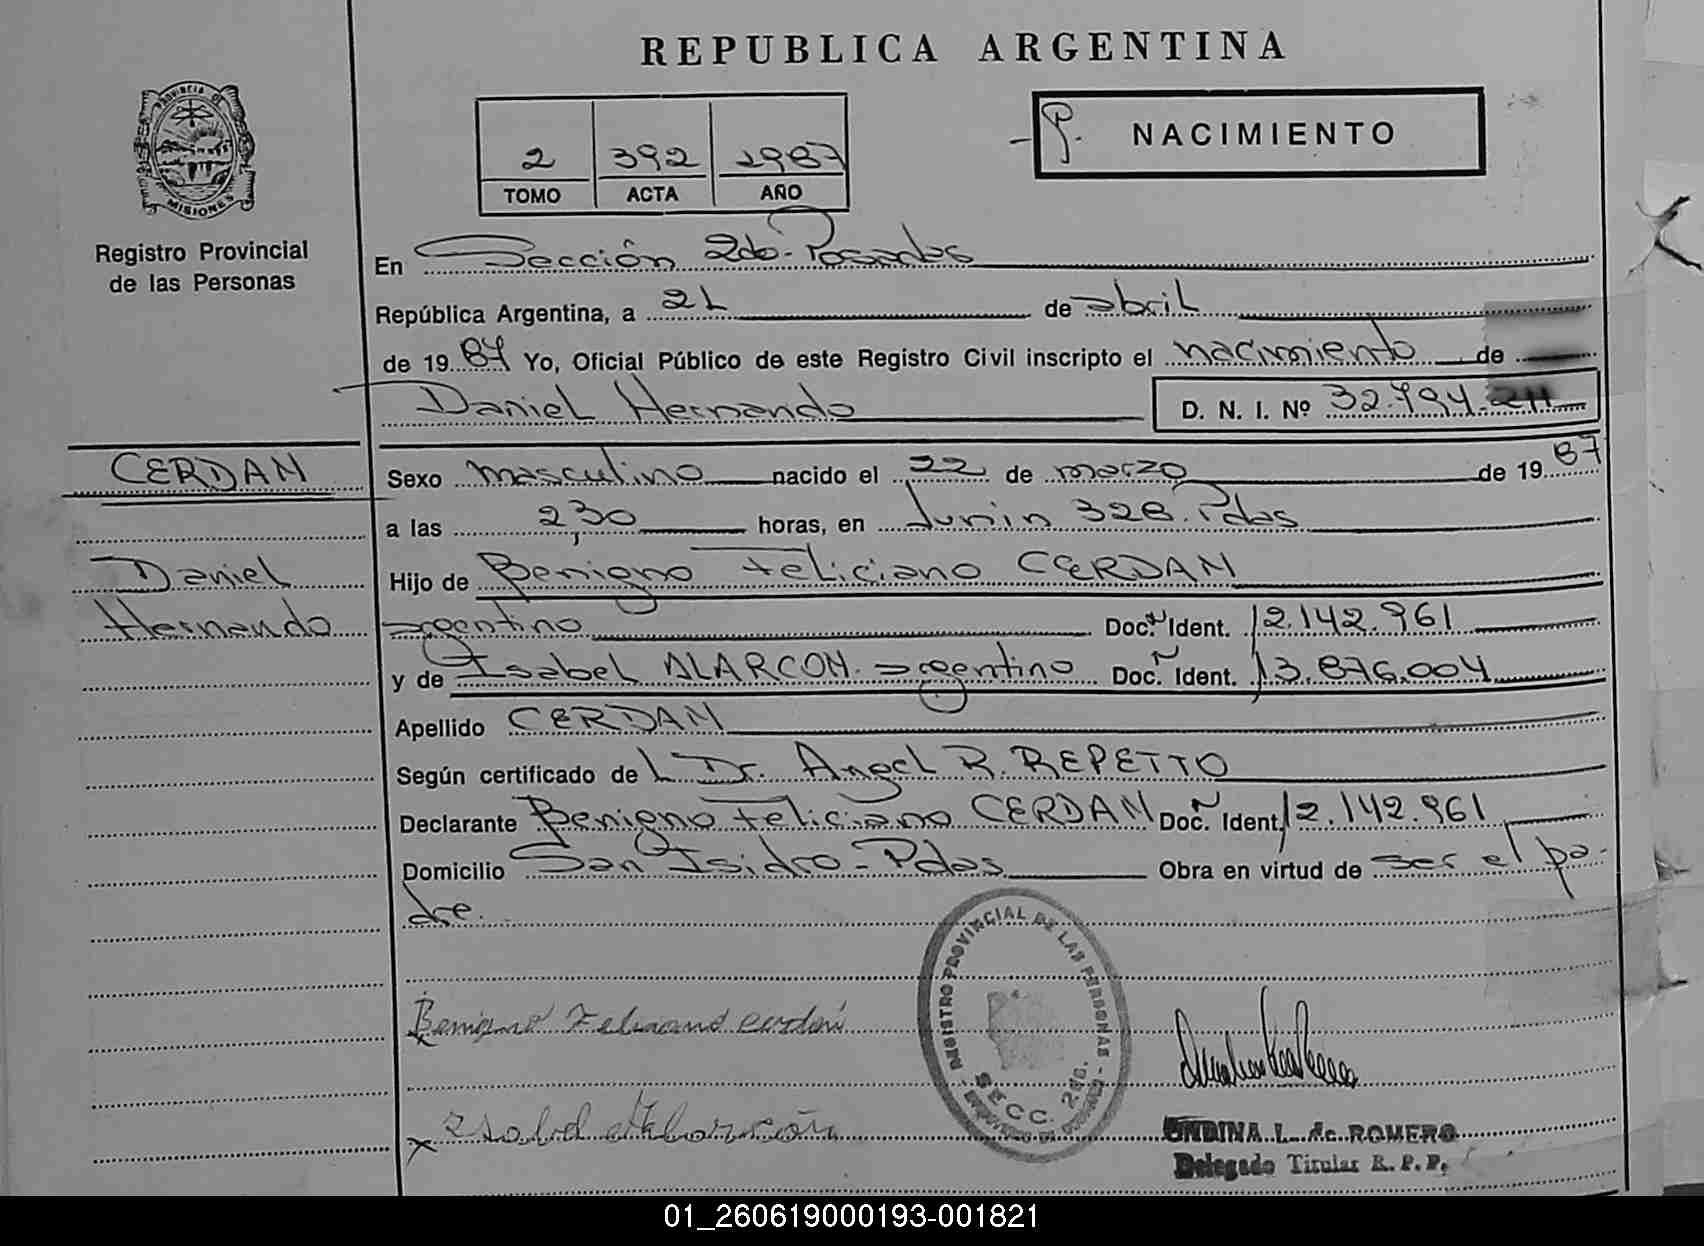 REPUBLICA ARGENTINA
PROVINCIA DE
MISIONES
Registro Provincial
de las Personas
2 392 1987
TOMO ACTA AÑO
P. NACIMIENTO
En Sección 2da- Posadas
República Argentina, a 21 de abril
de 1987 Yo, Oficial Público de este Registro Civil inscripto el nacimiento de
Daniel Hernando D. N. I. Nº 32.794.211
CERDAN
Sexo masculino nacido el 22 de marzo de 1987
a las 2,30 horas, en Junin 328. Pdas
Daniel
Hernando
Hijo de Benigno Feliciano CERDAN
argentino Doc. Ident. 12.142.961
y de Isabel ALARCON. argentino Doc. Ident. 13.876.004
Apellido CERDAN
Según certificado de L Dr. Angel R. REPETTO
Declarante Benigno Feliciano CERDAN Doc. Ident. 12.142.961
Domicilio San Isidro - Pdas Obra en virtud de ser el pa-
dre.
REGISTRO PROVINCIAL DE LAS PERSONAS
SECC. 2da.
Benigno Feliciano Cerdán
x Isabel Alarcón
UNDINA L. de ROMERO
Delegado Titular R. P. P.
01_260619000193-001821